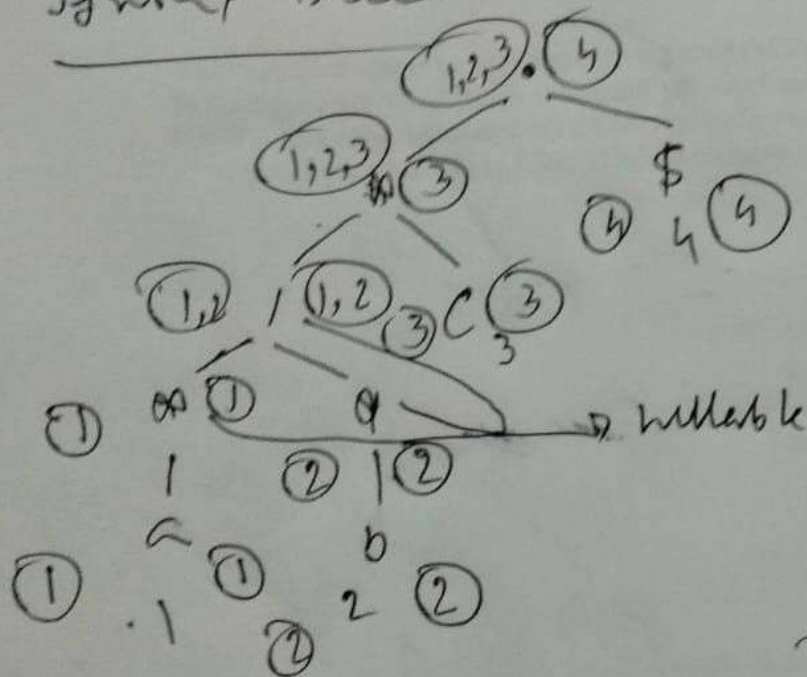 1,2,3 . 4
1,2,3 3 $
4 4 4
1,2 / 1,2 3 C 3
3
1 1 nullable
2 2
b
1 1 2 2
1 2